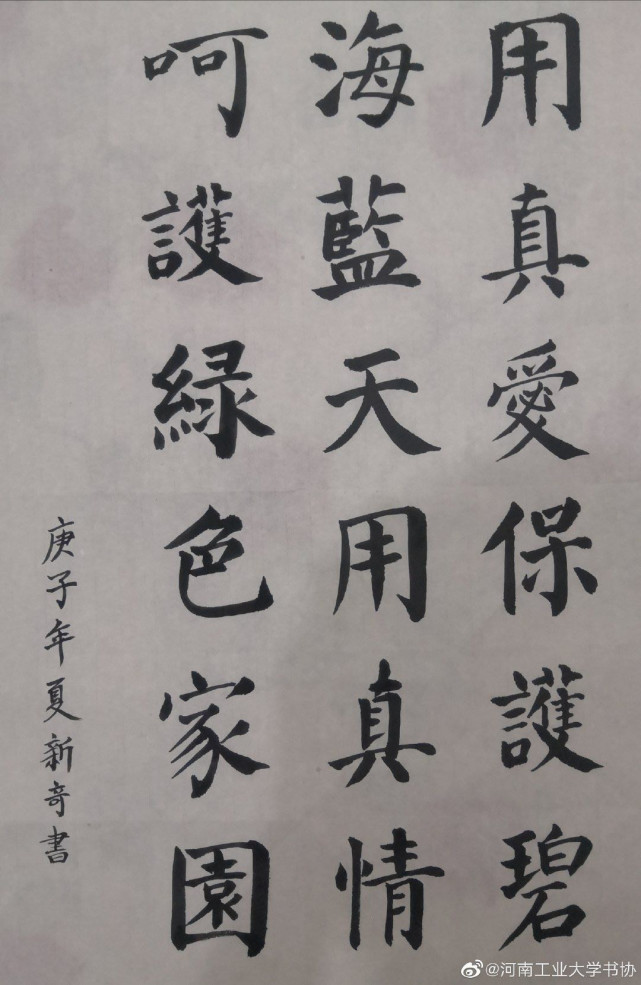 用真愛保護碧
海藍天用真情
呵護緑色家園
庚子年夏新奇書
@河南工业大学书协